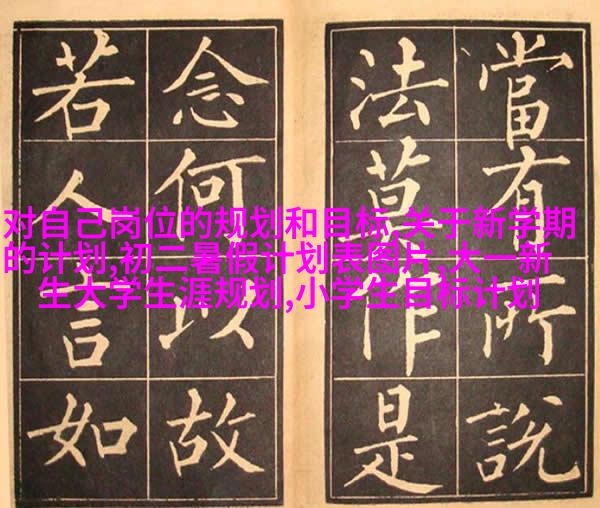 當有所說
法莫作是
念何以故
若人言如
对自己岗位的规划和目标,关于新学期
的计划,初二暑假计划表图片,大一新
生大学生涯规划,小学生目标计划